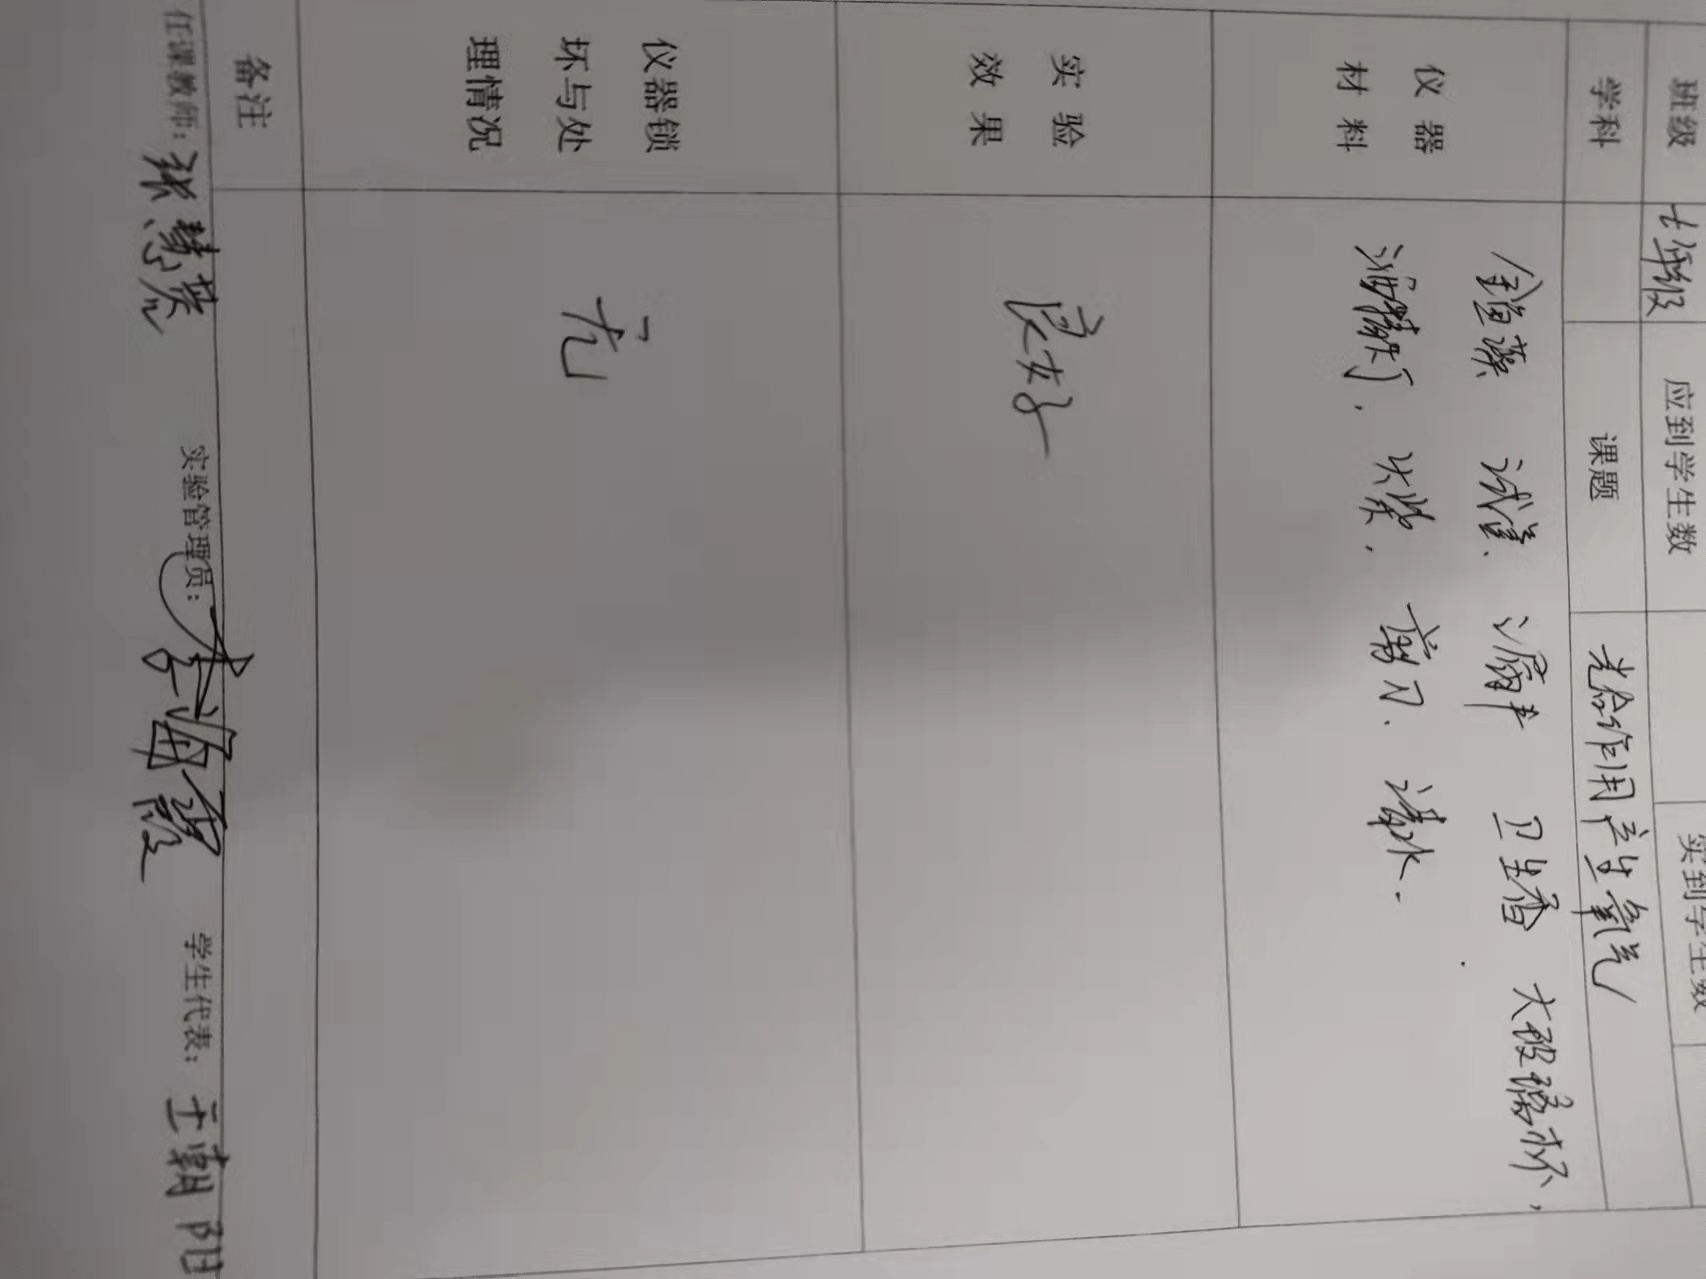 班级 七年级 应到学生数 实到学生数
学科 课题 光合作用产生氧气
仪器材料 金鱼藻 试管、漏斗 卫生香 大玻璃杯,
酒精灯, 火柴, 剪刀、清水.
实验效果 良好
仪器锁坏与处理情况 无
备注
任课教师: 张慧英 实验管理员: 李海霞 学生代表: 王朝阳